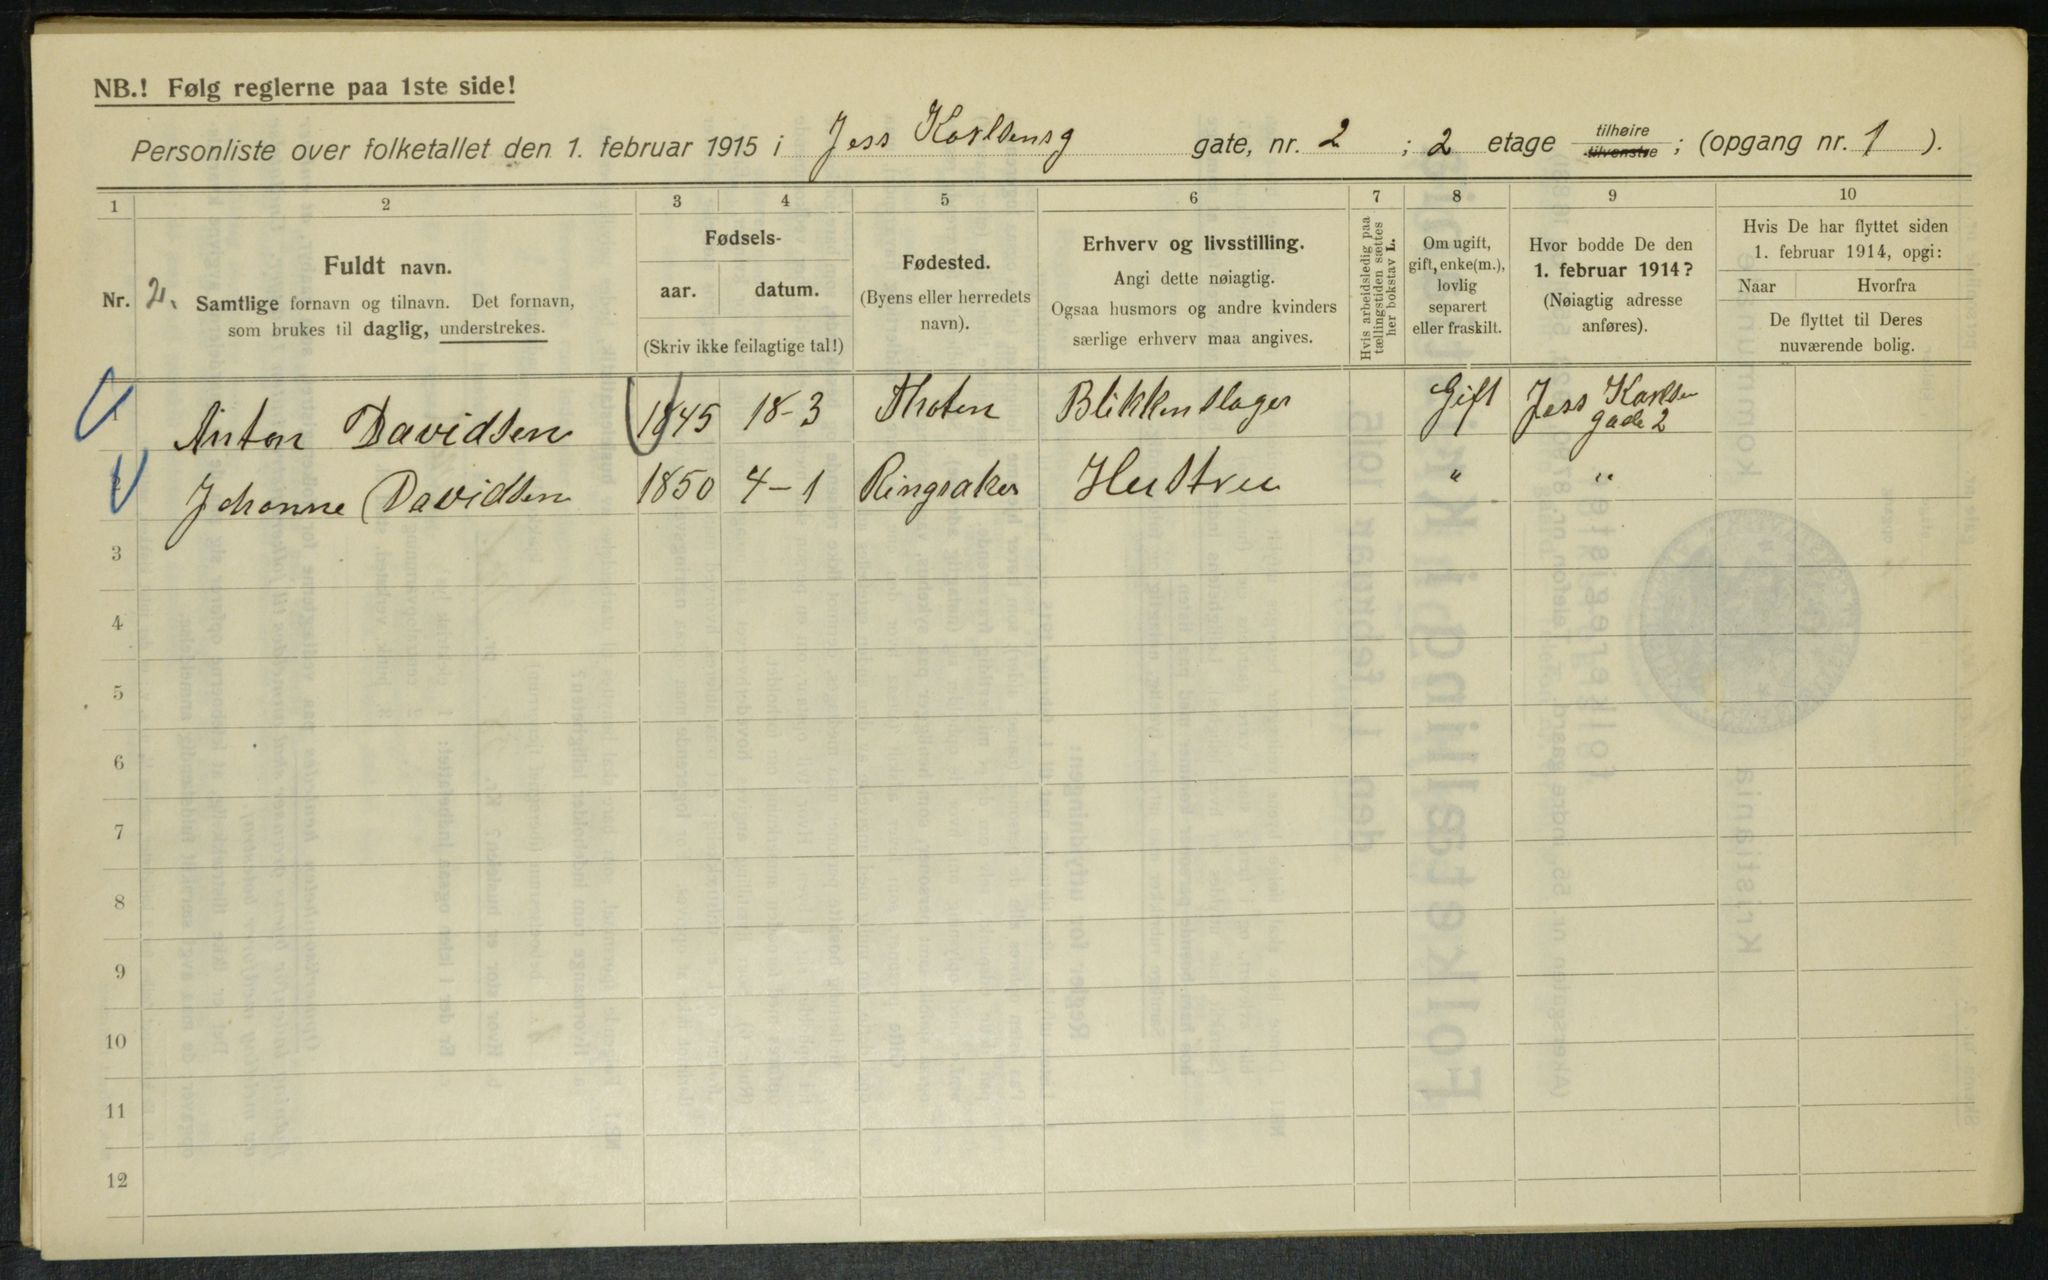 NB.! Følg reglerne paa 1ste side!
Personliste over folketallet den 1. februar 1915 i Jess Karlsensg gate, nr. 2 ; 2 etage tilhøire tilvenstre ; (opgang nr. 1 ).
1 2 3 4 5 6 7 8 9 10
Nr. 2.
Fuldt navn.
Samtlige fornavn og tilnavn. Det fornavn,
som brukes til daglig, understrekes.
Fødsels-
aar. datum.
(Skriv ikke feilagtige tal!)
Fødested.
(Byens eller herredets
navn).
Erhverv og livsstilling.
Angi dette nøiagtig.
Ogsaa husmors og andre kvinders
særlige erhverv maa angives.
Hvis arbeidsledig paa
tællingstiden sættes
her bokstav L.
Om ugift,
gift, enke(m.),
lovlig
separert
eller fraskilt.
Hvor bodde De den
1. februar 1914?
(Nøiagtig adresse
anføres).
Hvis De har flyttet siden
1. februar 1914, opgi:
Naar Hvorfra
De flyttet til Deres
nuværende bolig.
1 Anton Davidsen 1845 18-3 Thoten Blikkenslager Gift Jess Karlsen
gade 2
2 Johanne Davidsen 1850 4-1 Ringsaker Hustru " "
3
4
5
6
7
8
9
10
11
12